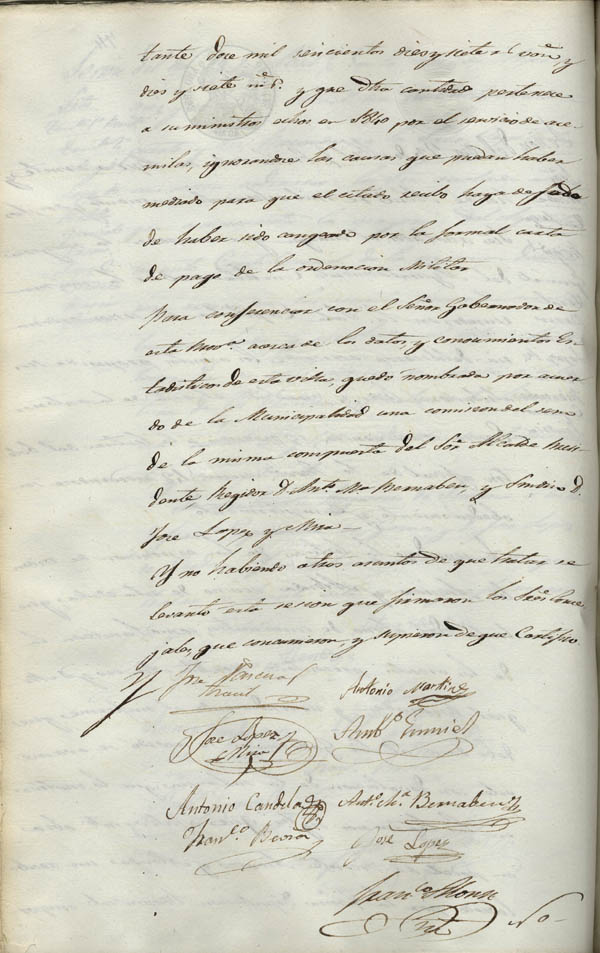 tante doce mil seiscientos diez y siete rs. von. y
diez y siete ms. y que dha cantidad pertenece
a suministros echos en 1840 por el servicio de ace
milas, ignorandose las causas que puedan haber
mediado para que el citado recibo haya de
de haber sido cangeado por la formal carta
de pago de la ordenacion Militar
Para conferenciar con el Señor Gobernador de
esta Prova. acerca de los datos y conocimientos Es
tadisticos de esta villa, quedo nombrada por acuer
do de la Municipalidad una comision del seno
de la misma compuesta del Sor. Alcalde Presi
dente, Regidor D. Anto. Ma. Bernabeu, y Sindico D.
Jose Lopez y Mira
Y no habiendo otros asuntos de que tratar se
levanto esta sesion que firmaron los Sres. Conce
jales, que concurrieron, y supieron de que Certifico
Antonio Martinez
Jose Lopez
y Mira
Antonio Candela
Anto. Ma. Bernabeu
Franco.
Jose Lopez